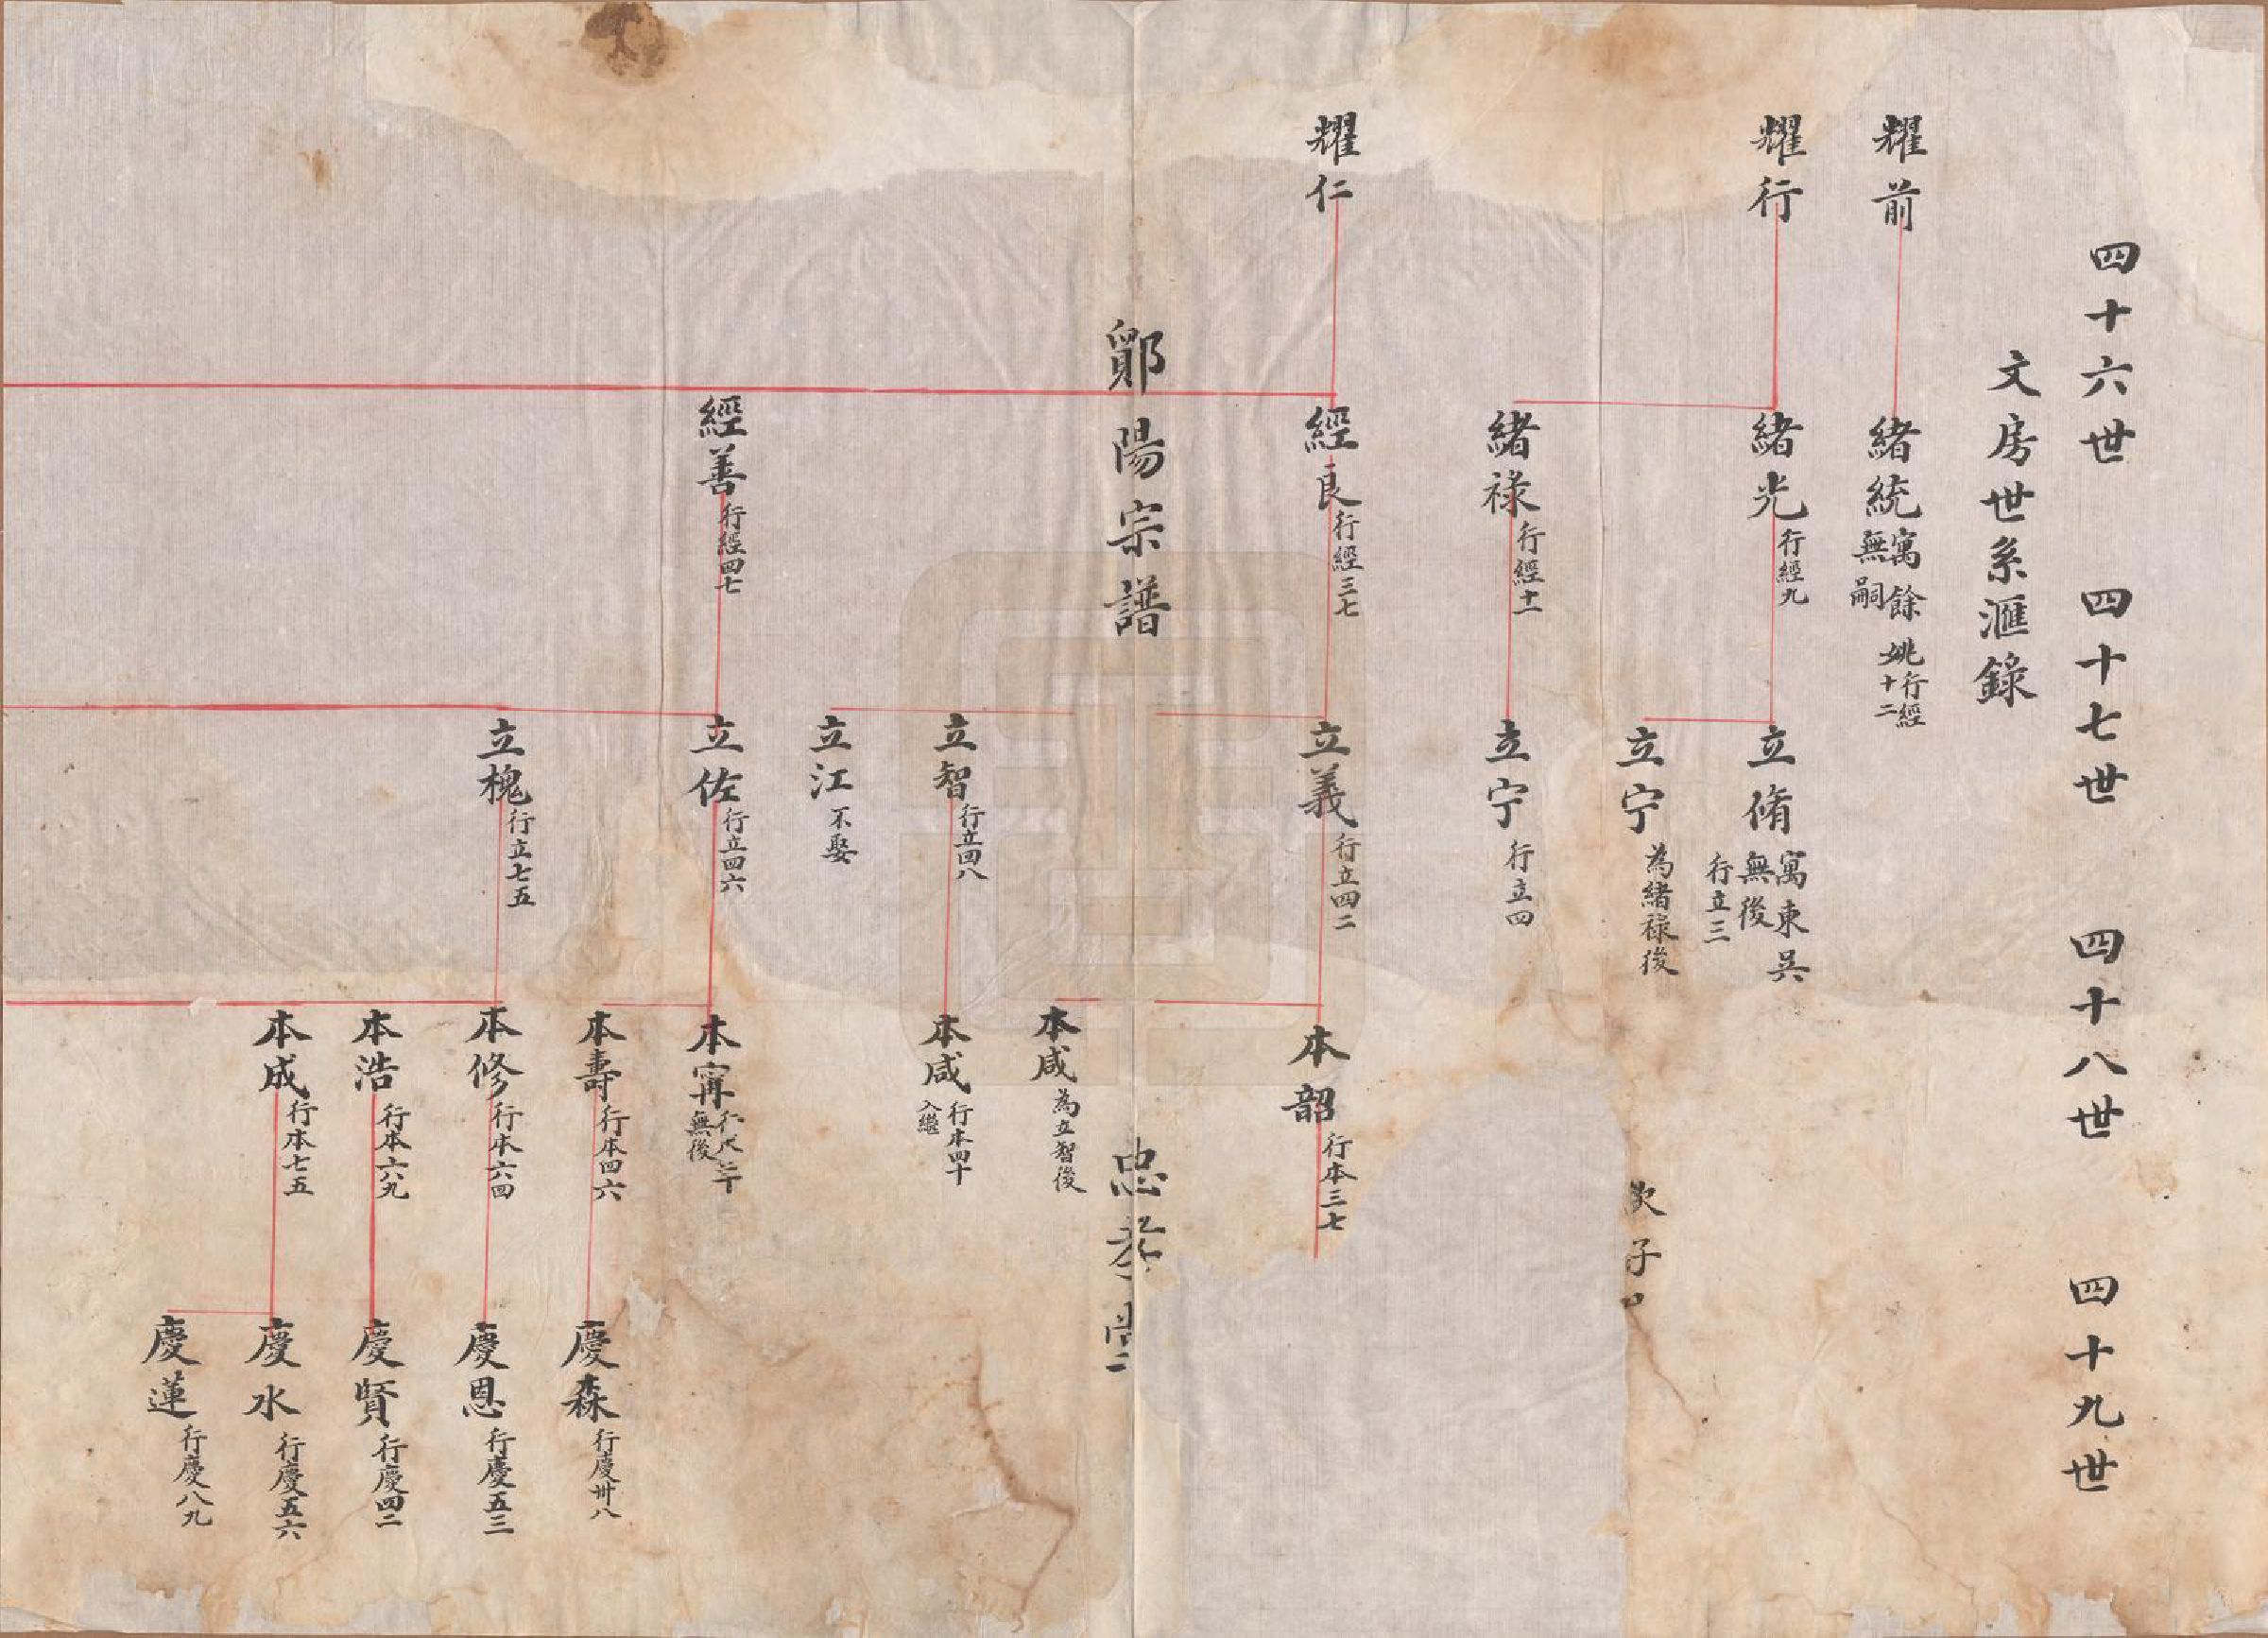 四十六世 四十七世 四十八世 四十九世
文房世系滙錄
耀前
緒統
寓餘姚
無嗣
行經十二
耀行
緒光
行經九
立脩
寓東吳
無後
行立三
立宁
為緒祿後
次子
緒祿
行經十一
立宁
行立四
耀仁
經良
行經三七
立義
行立四二
本韶
行本三七
鄖陽宗譜
忠孝堂
本咸
為立智後
立智
行立四八
本咸
行本四十
入繼
立江
不娶
經善
行經四七
立佐
行立四六
本甯
無後
本壽
行本四六
慶森
行慶卅八
立槐
行立七五
本修
行本六四
慶恩
行慶五三
本浩
行本六九
慶賢
行慶四二
本成
行本七五
慶水
行慶五六
慶蓮
行慶八九